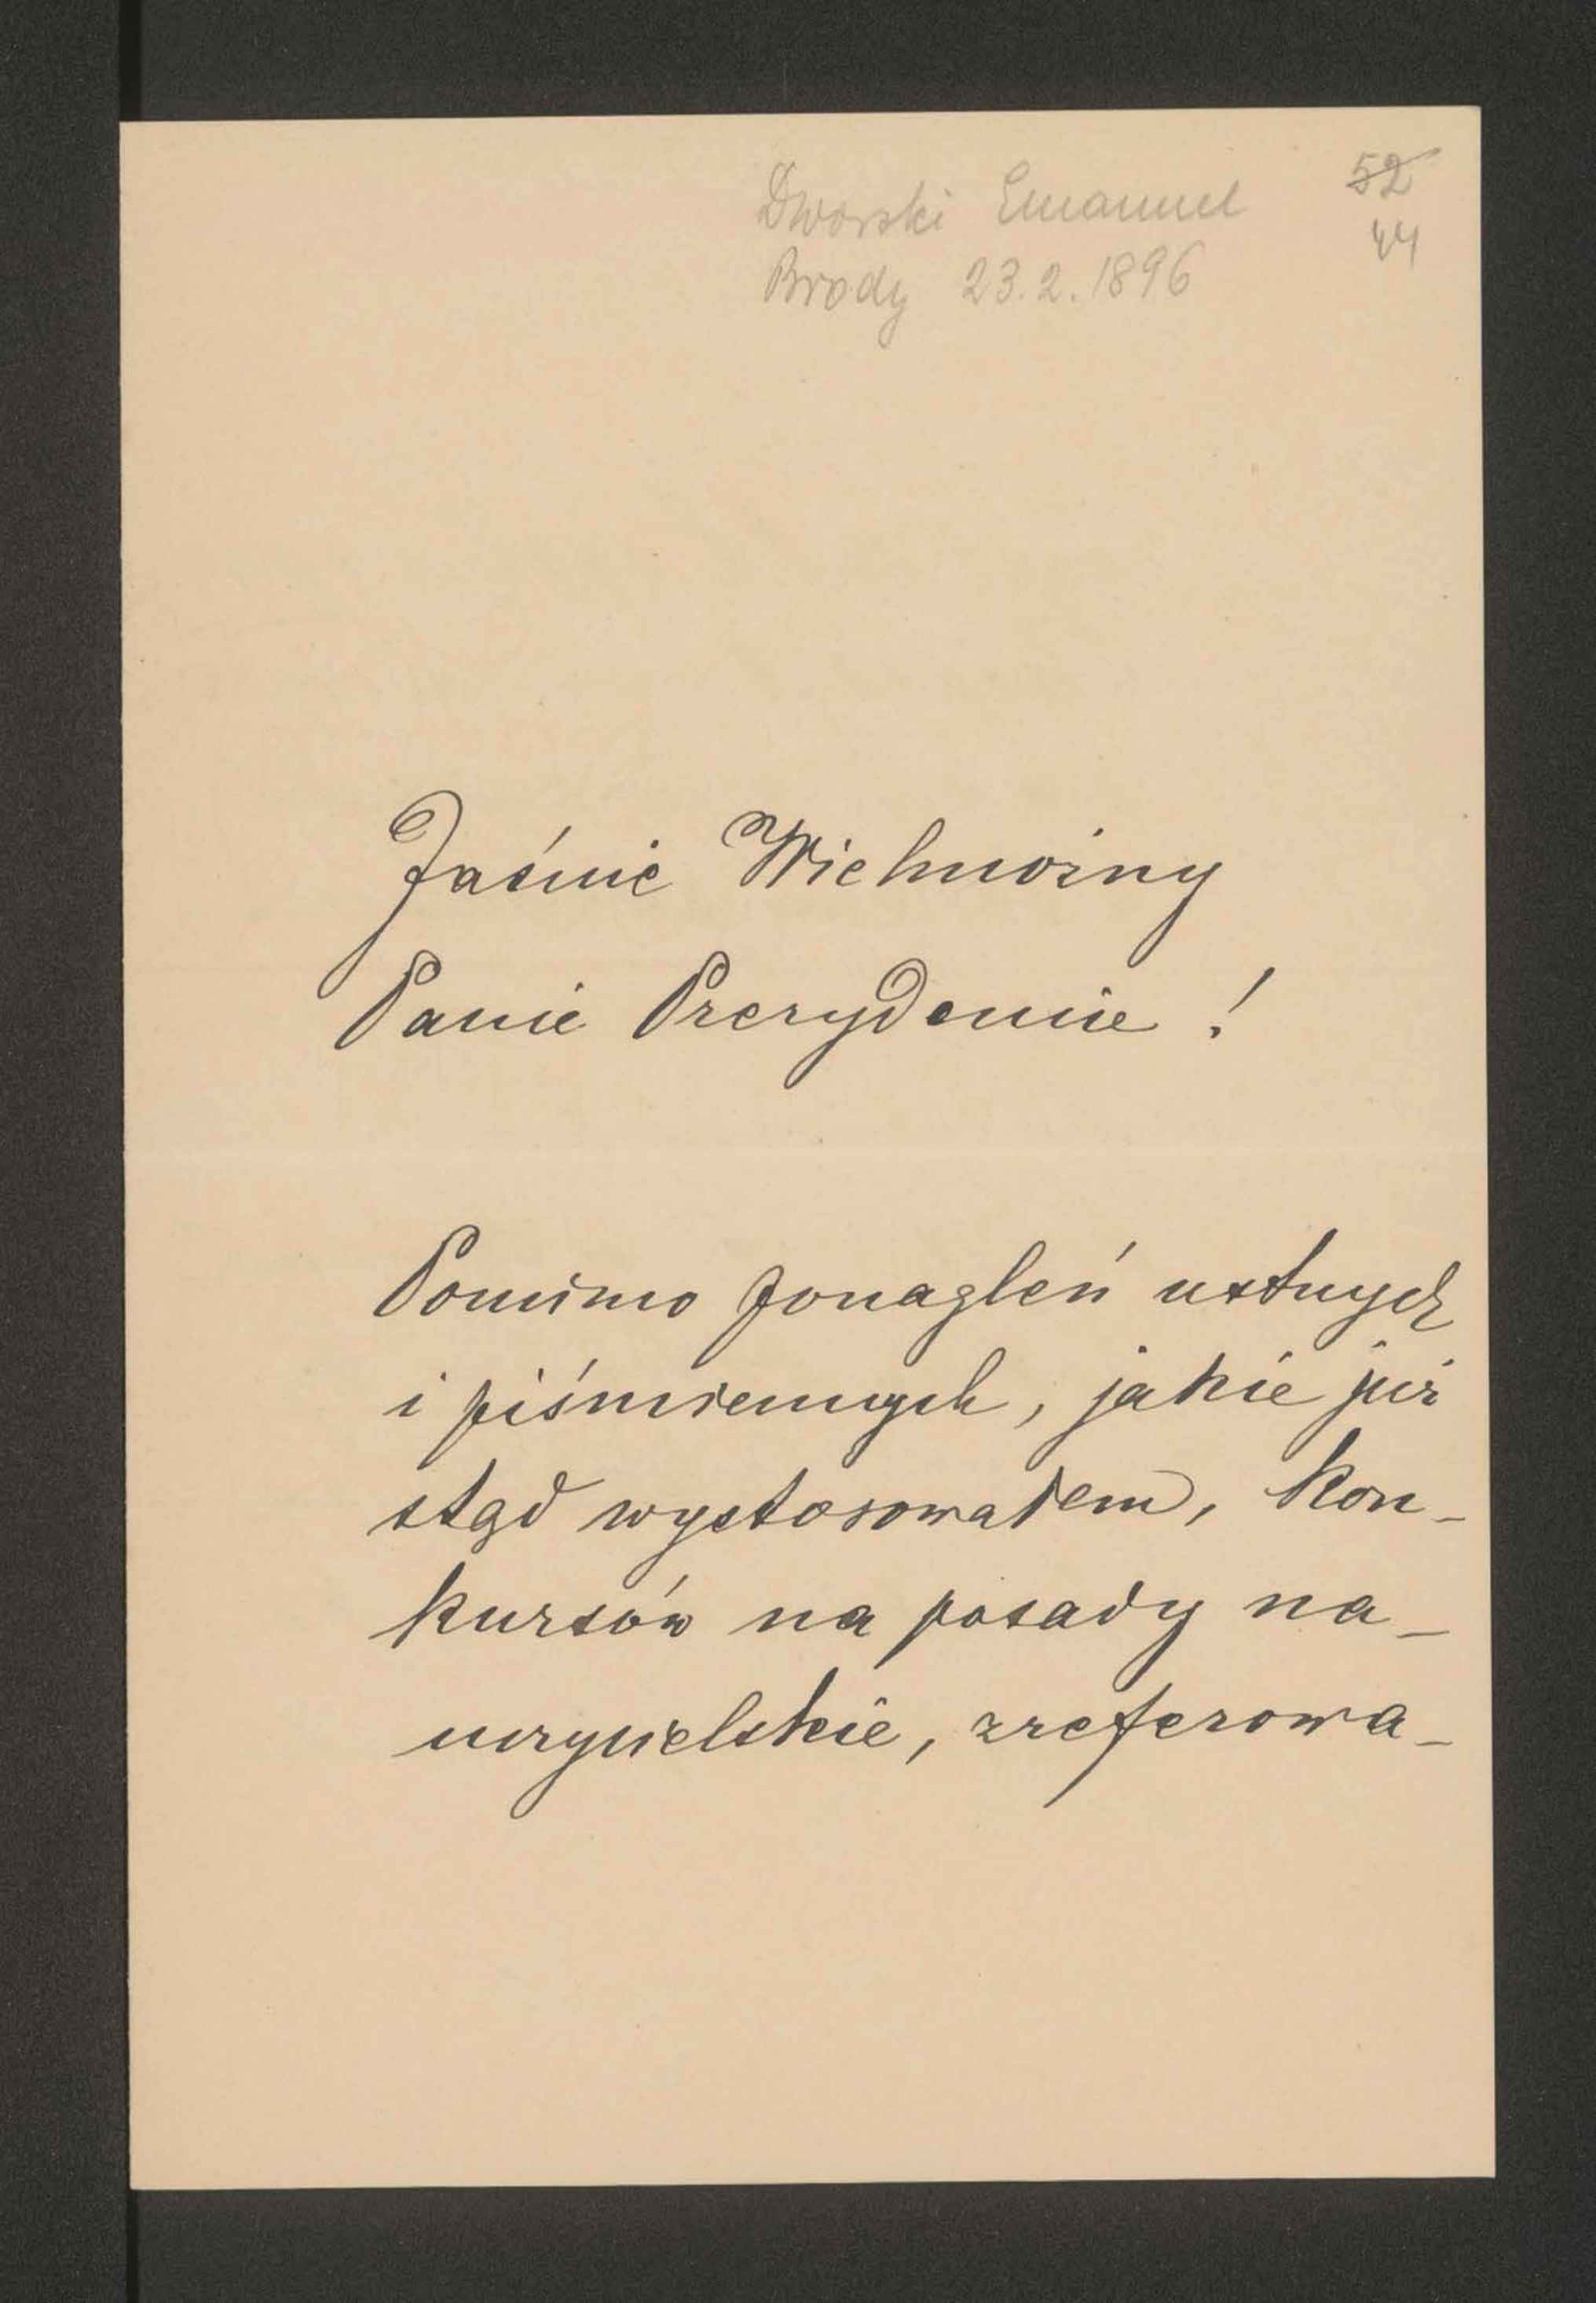 Dworski Emanuel 52
Brody 23.2.1896 44
Jaśnie Wielmożny
Panie Prezydencie !
Pomimo ponagleń ustnych
i piśmiennych, jakie już
stąd wystosowałem, kon-
kursów na posady na-
uczycielskie, zreferowa-